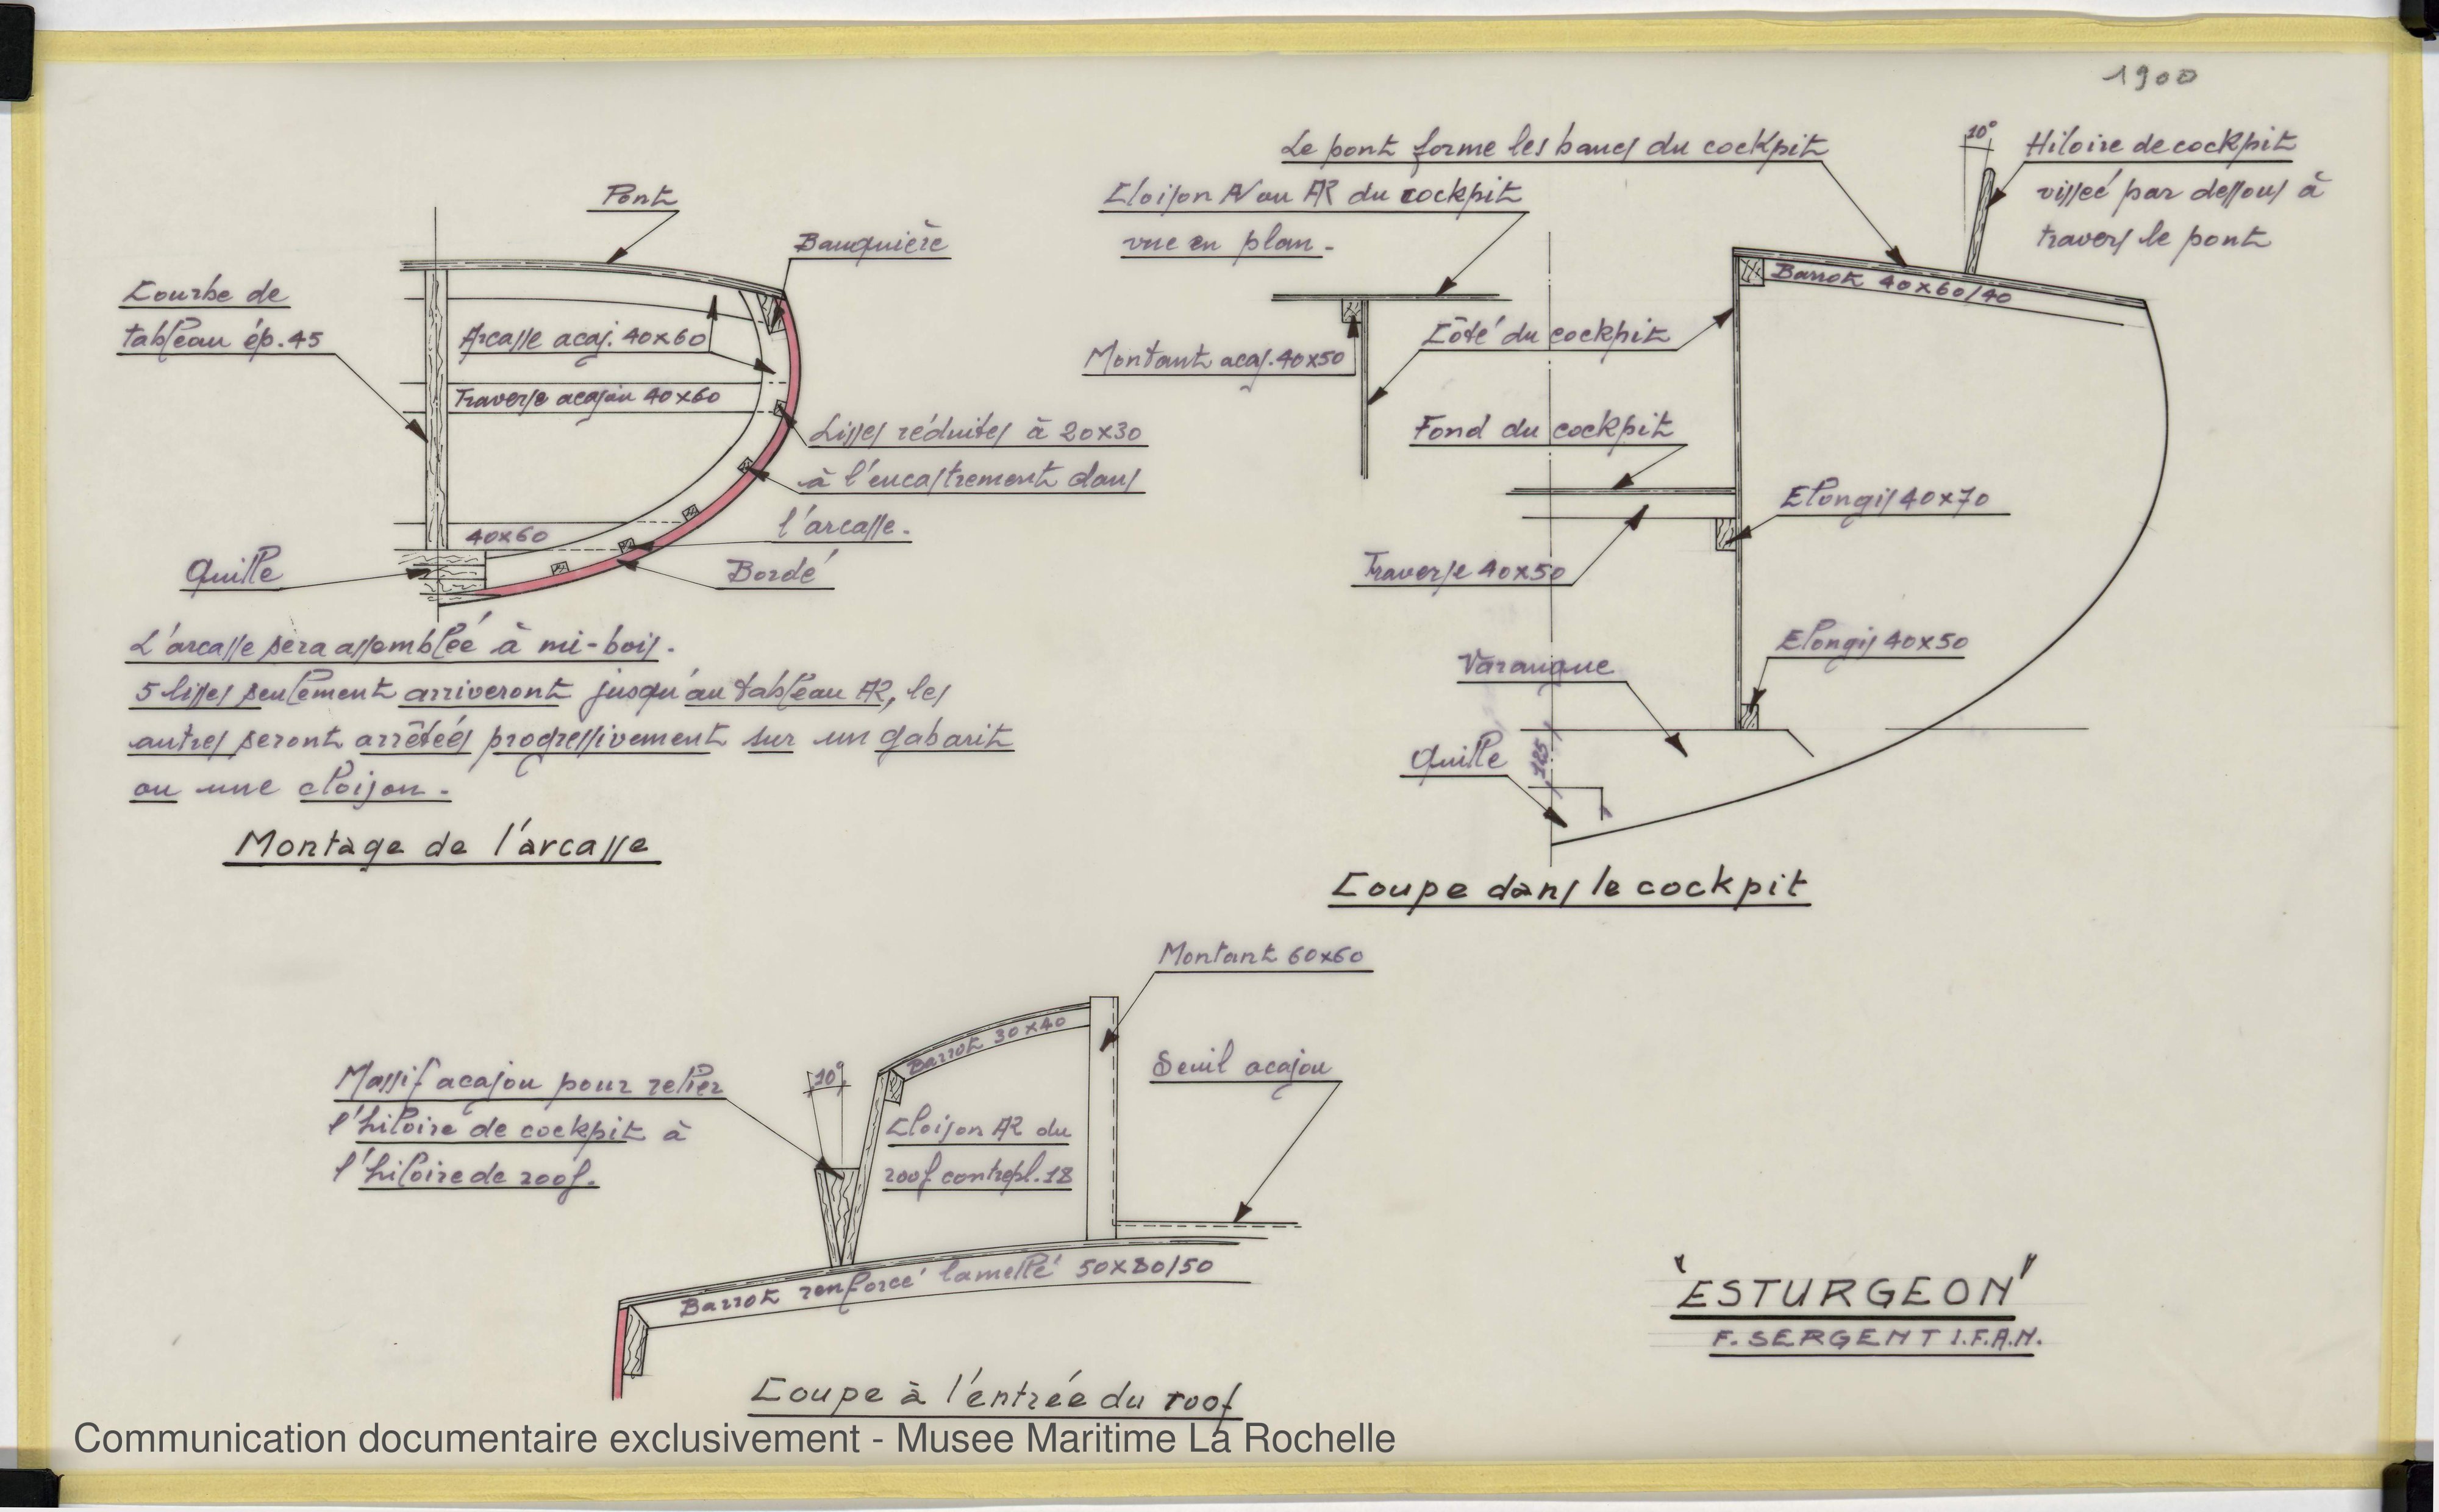 1900
Pont
Bauquière
Courbe de
tableau ép. 45
Arcasse acaj. 40x60
Traverse acajou 40x60
Lisses réduites à 20x30
à l'encastrement dans
l'arcasse.
40x60
Quille
Bordé
L'arcasse sera assemblée à mi-bois.
5 lisses seulement arriveront jusqu'au tableau AR, les
autres seront arrêtées progressivement sur un gabarit
ou une cloison.
Montage de l'arcasse
Le pont forme les bancs du cockpit
10°
Hiloire de cockpit
vissée par dessous à
travers le pont
Cloison AV ou AR du cockpit
vue en plan.
Barrot 40x60/40
Côté du cockpit
Montant acaj. 40x50
Fond du cockpit
Elongis 40x70
Traverse 40x50
Elongis 40x50
Varangue
Quille
125
Coupe dans le cockpit
Montant 60x60
Barrot 30x40
Massif acajou pour relier
l'hiloire de cockpit à
l'hiloire de roof.
10°
Seuil acajou
Cloison AR du
roof contrepl. 18
Barrot renforcé lamellé 50x80/50
Coupe à l'entrée du roof
"ESTURGEON"
F. SERGENT I.F.A.N.
Communication documentaire exclusivement - Musee Maritime La Rochelle